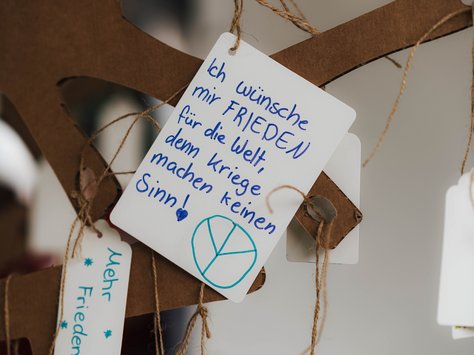 Ich wünsche
mir FRIEDEN
für die Welt,
denn Kriege
machen keinen
Sinn!
Mehr
Frieden